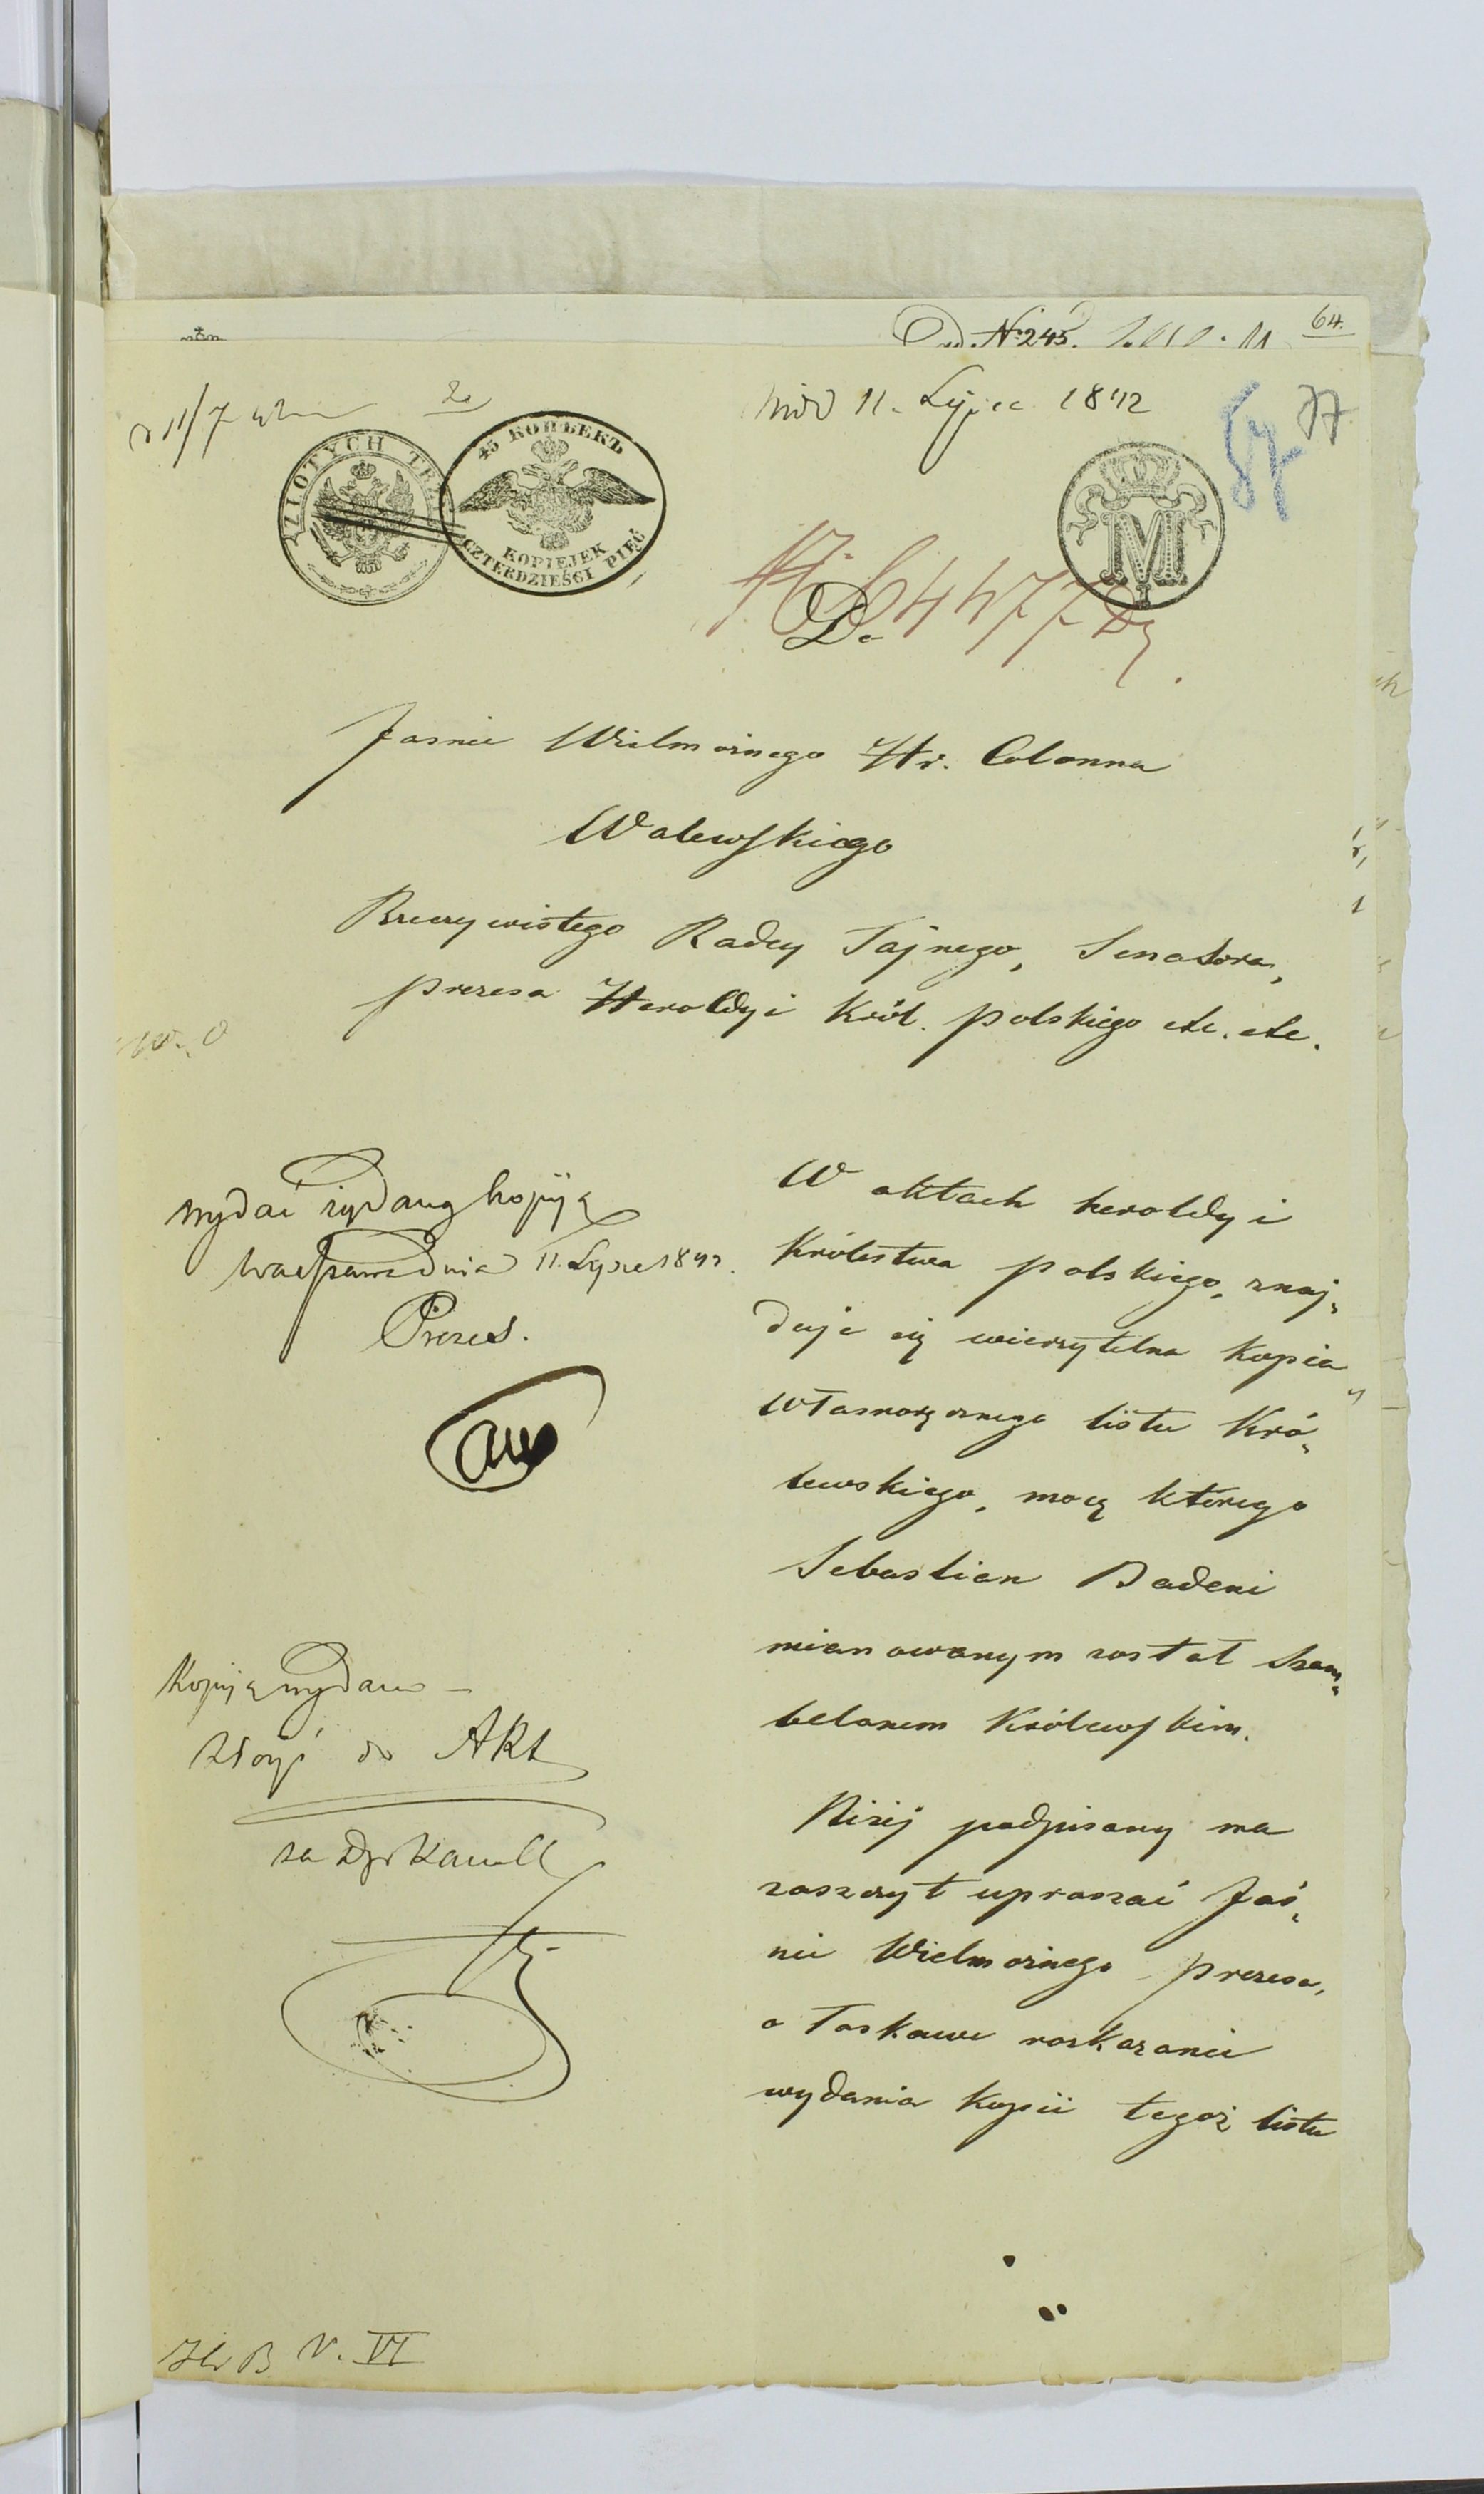 64.
Nº 245.
11. Lipca 1842
77
ZŁOTYCH TRZY
45 КОПѢЕКЪ
KOPIEJEK
CZTERDZIEŚCI PIĘĆ
M
I
Nº 64477
Do
Jaśnie Wielmożnego Hr. Colonna
Walewskiego
Rzeczywistego Radcy Tajnego, Senatora,
prezesa Heroldyi Król. polskiego etc. etc.
wydać żądaną kopiją
Warszawa dnia 11. Lipca 1842.
Prezes.
W aktach heroldyi
Królestwa polskiego, znaj„
duje się wierzytelna kopia
własnoręcznego listu Kró„
lewskiego, mocą którego
Sebastian Badeni
mianowanym został Szam„
belanem Królewskim.
Niżej podpisany ma
zaszczyt upraszać Jaś„
nie Wielmożnego prezesa,
o łaskawe rozkazanie
wydania kopii tegoż listu
Kopiją wydano –
złożyć do Akt
za Dyr Kancell
B V. VI